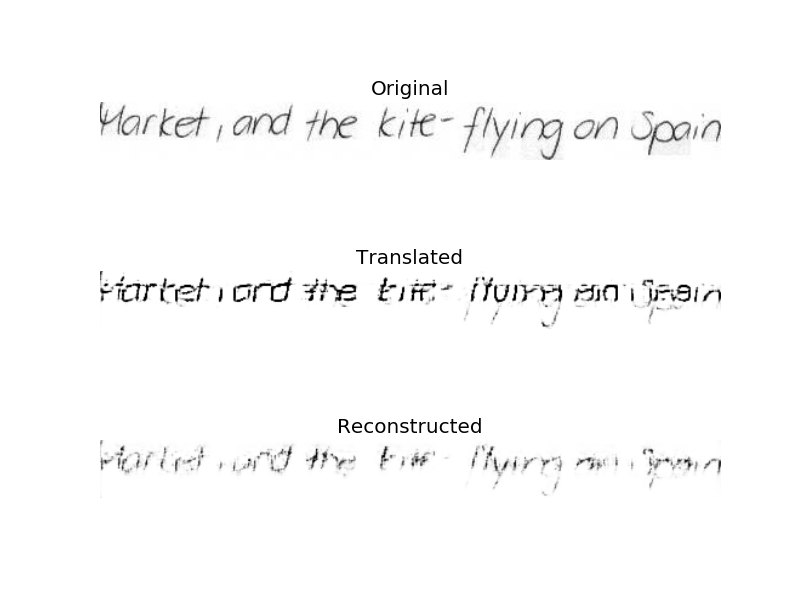 Original
Market, and the kite- flying on Spain
Translated
Market, and the
Reconstructed
Market, and the flying Spain